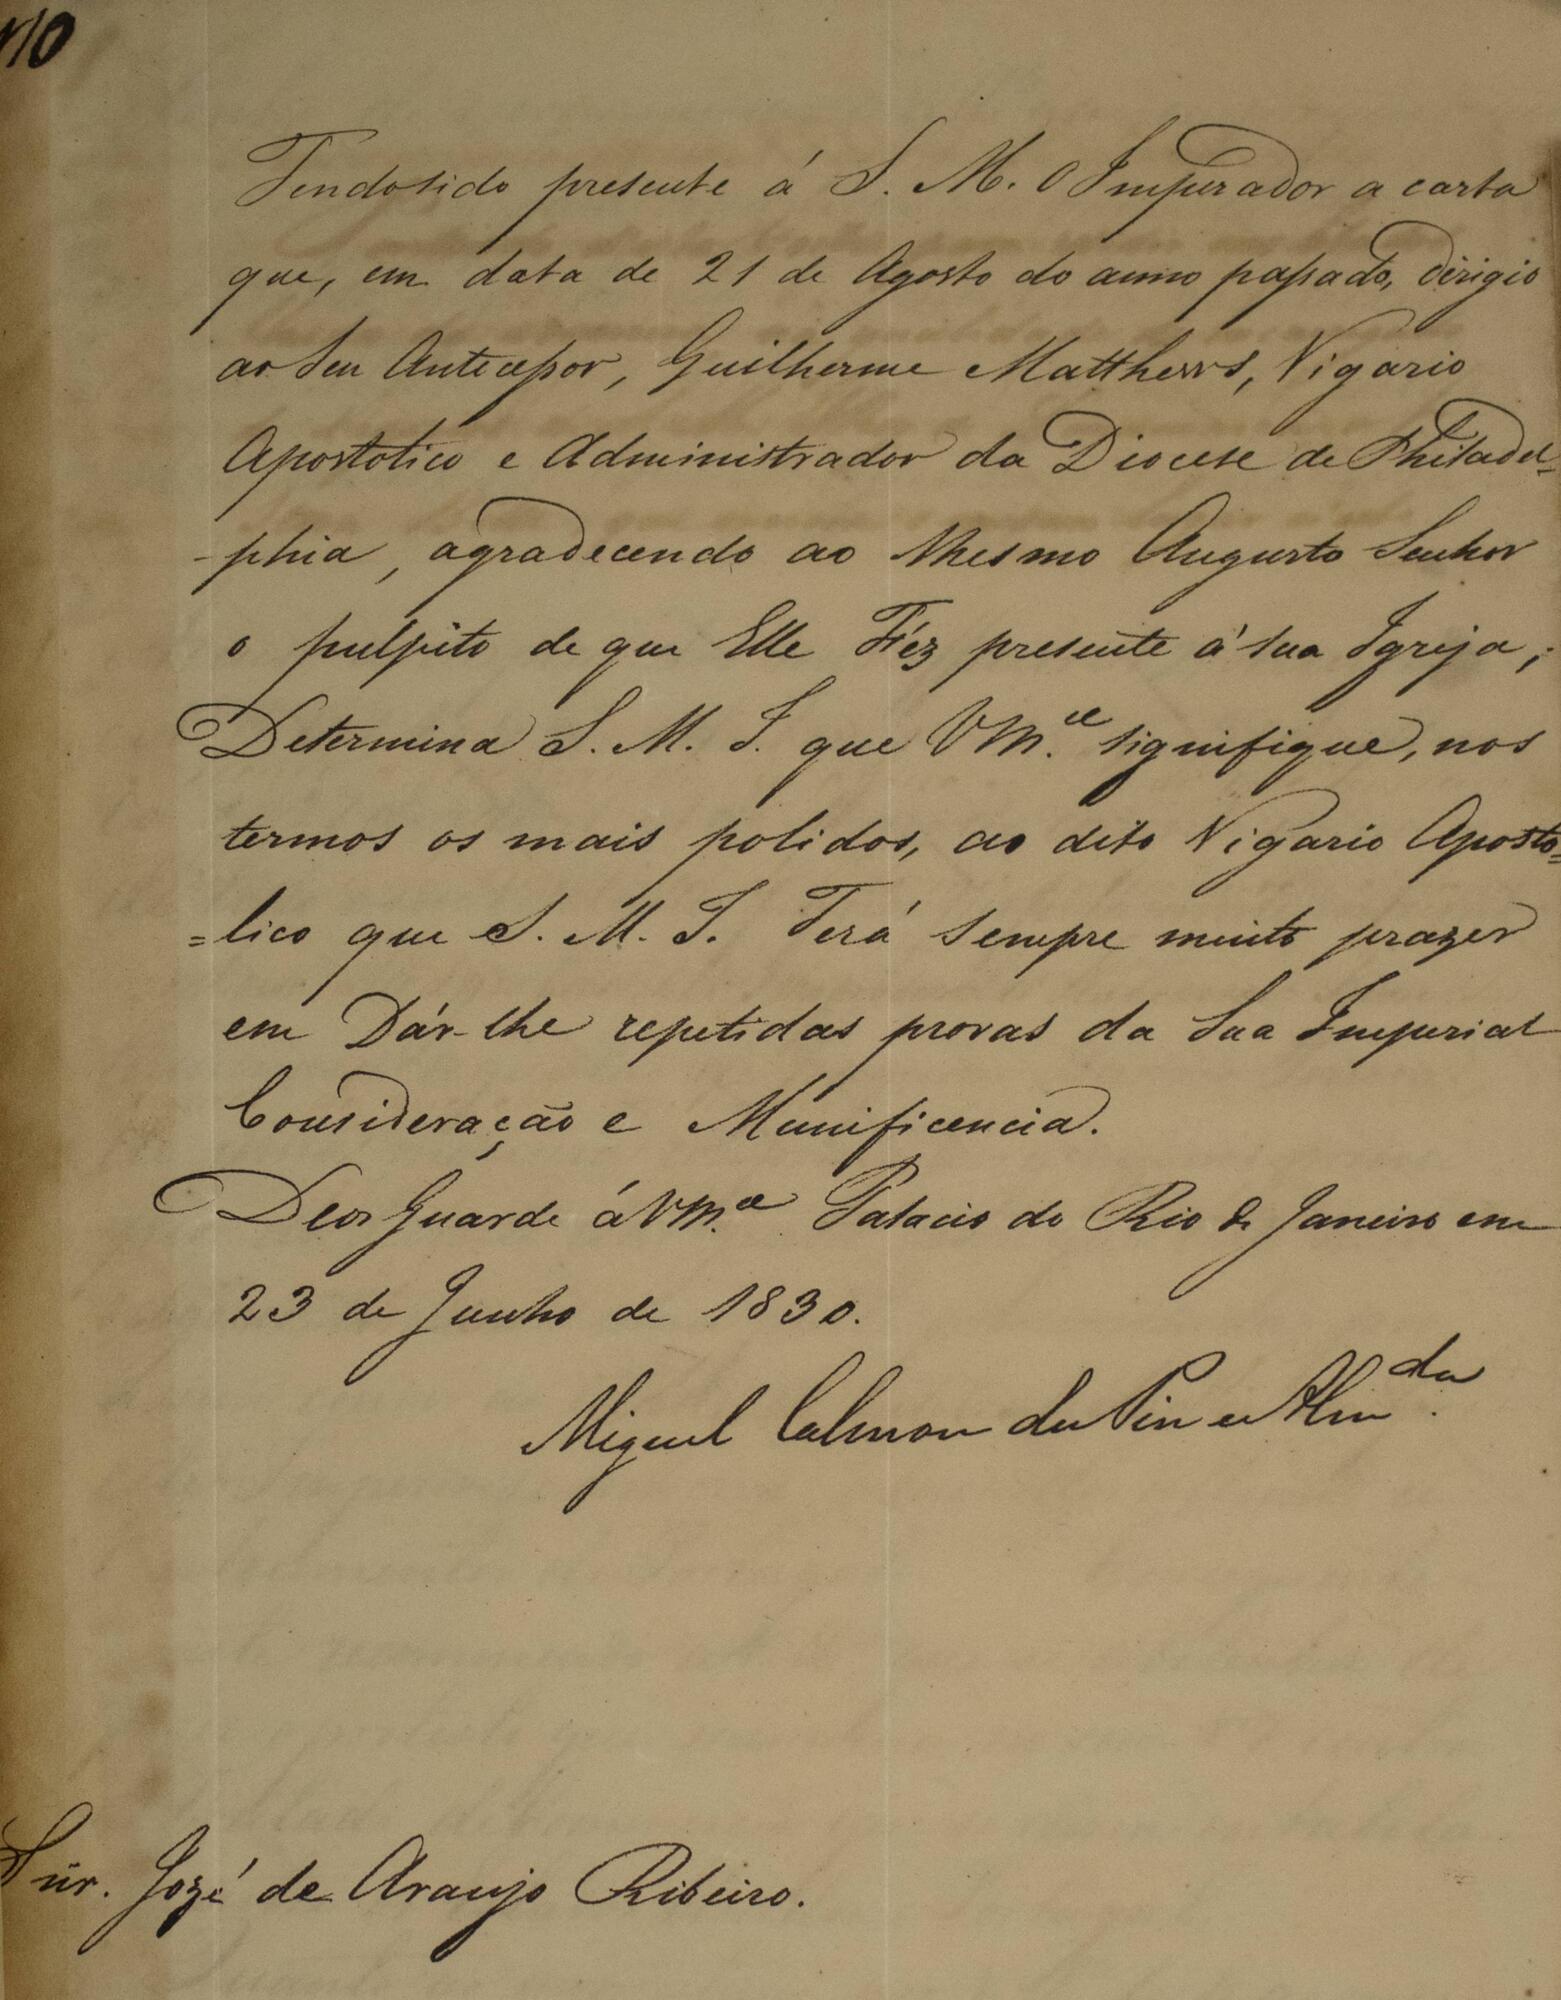 Tendo sido presente á S. M. O Imperador a carta
que, em data de 21 de Agosto do anno passado, dirigio
ao seu Antecessor, Guilherme Matthews, Vigario
Apostolico e Administrador da Diocese de Philadel-
-phia, agradecendo ao Mesmo Augusto Senhor
o pulpito de que Elle Fez presente á sua Igreja;
Determina S. M. I. que Vm.ce signifique, nos
termos os mais polidos, ao dito Vigario Aposto=
=lico que S. M. I. Terá sempre muito prazer
em Dár-lhe repetidas provas da Sua Imperial
Consideração e Munificencia.
Deos Guarde á Vm.ce Palacio do Rio de Janeiro em
23 de Junho de 1830.
Miguel Calmon du Pin e Alm.da
Snr. Jozé de Araujo Ribeiro.